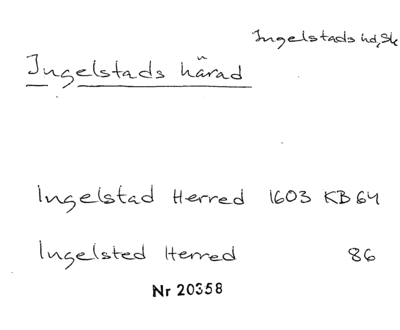 Ingelstads hd, Sk
Ingelstads härad
Ingelstad Herred 1603 KB 64
Ingelsted Herred 86
Nr 20358